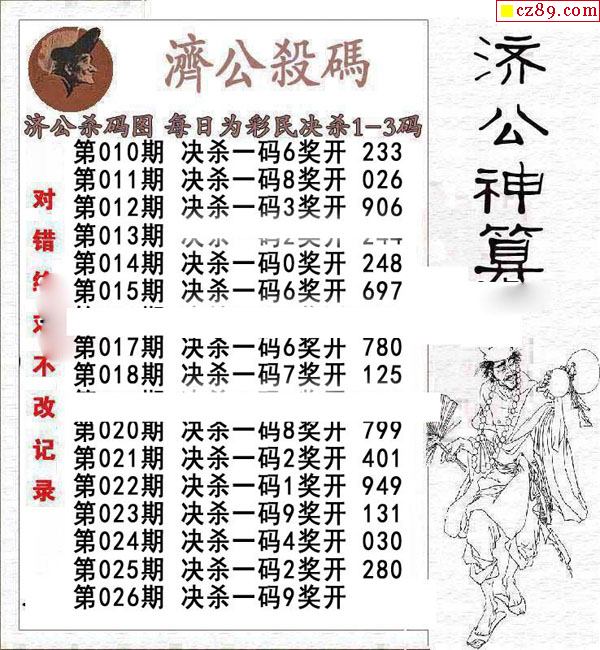 cz89.com
濟公殺碼
济公神算
济公杀码图 每日为彩民决杀1-3码
对错绝对不改记录
第010期 决杀一码6奖开 233
第011期 决杀一码8奖开 026
第012期 决杀一码3奖开 906
第013期 决杀一码2奖开 244
第014期 决杀一码0奖开 248
第015期 决杀一码6奖开 697
第017期 决杀一码6奖开 780
第018期 决杀一码7奖开 125
第020期 决杀一码8奖开 799
第021期 决杀一码2奖开 401
第022期 决杀一码1奖开 949
第023期 决杀一码9奖开 131
第024期 决杀一码4奖开 030
第025期 决杀一码2奖开 280
第026期 决杀一码9奖开